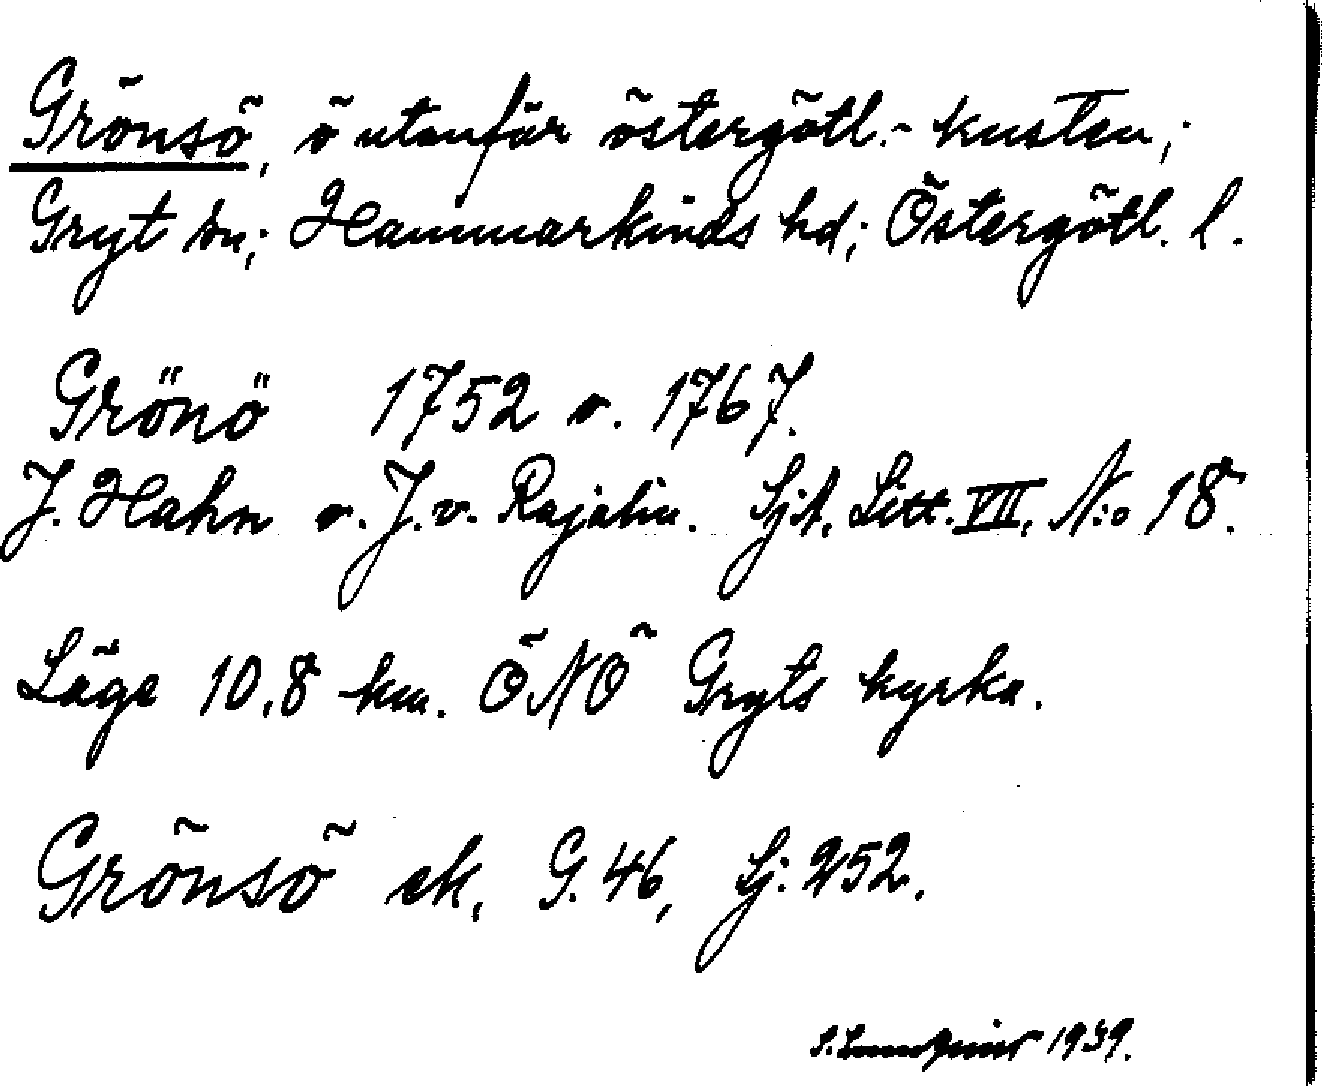 Grönsö, ö utanför östergötl.-kusten;
Gryt sn; Hammarkinds hd; Östergötl. l.
Grönö 1752 o. 1767.
J. Hahn o. J. v. Rajalin. Sjk. Litt. VII, N:o 18.
Läge 10,8 km. ÖNÖ Gryts kyrka.
Grönsö ek, G. 46, Sj: 252.
S. Lundqvist 1939.